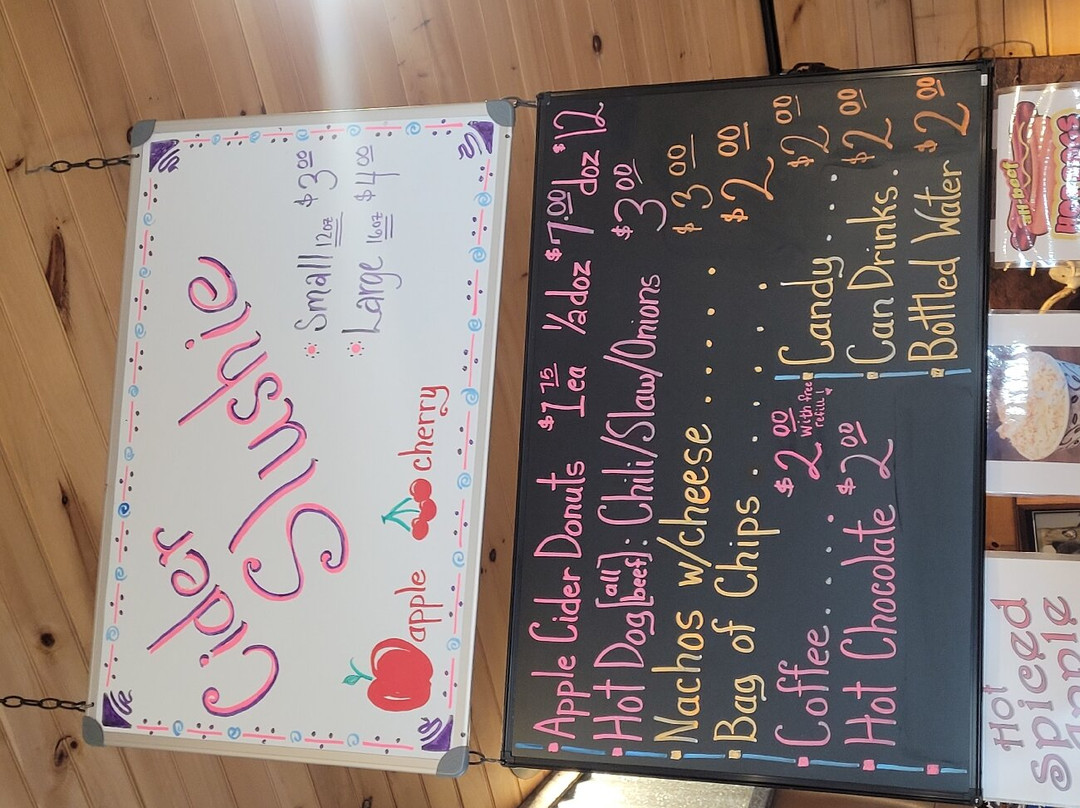 Cider
Slushie
Small 12oz $3.00
Large 16oz $4.00
apple cherry
Apple Cider Donuts $1.75 1ea ½doz $7.00 1 doz $12
Hot Dog [all beef]: Chili/Slaw/Onions $3.00
Nachos w/cheese ...... $3.00
Bag of Chips ..... $2.00
Coffee.... $2.00 With free refill!
Hot Chocolate $2.00
Candy.... $2.00
Can Drinks. $2.00
Bottled Water $2.00
all beef
Hot
Spiced
Apple